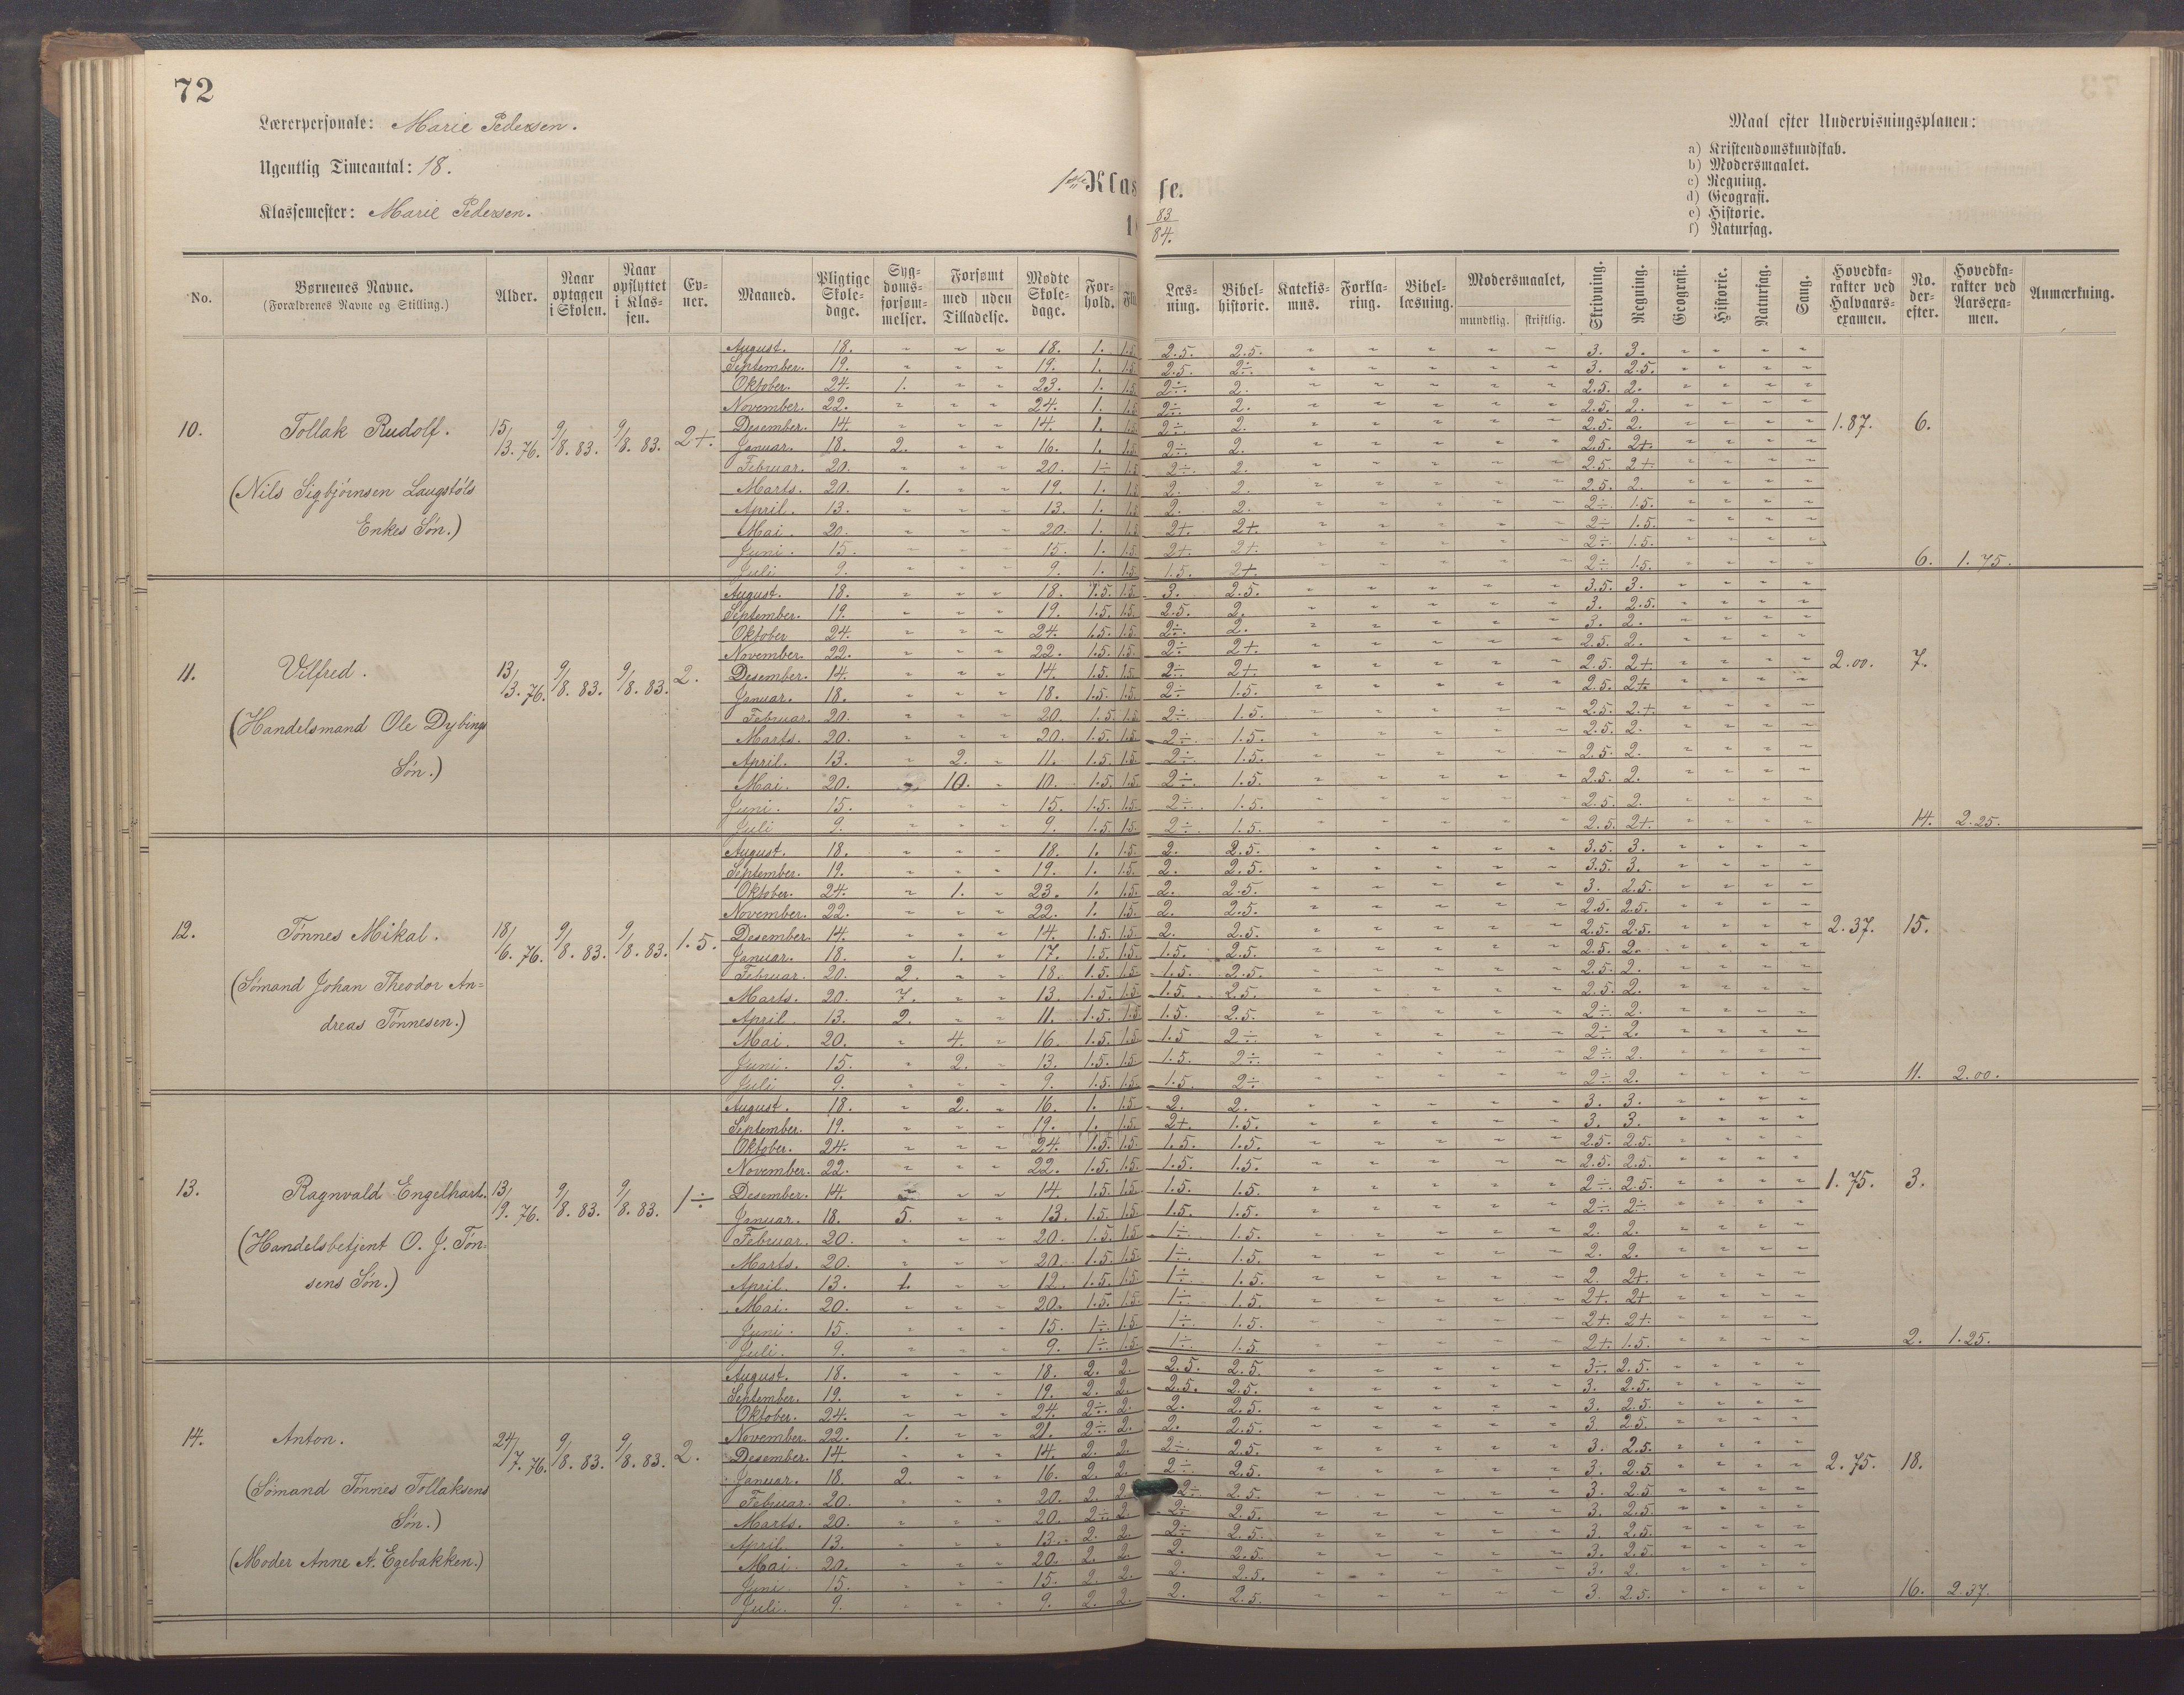 72
Lærerpersonale: Marie Pedersen.
Ugentlig Timeantal: 18.
Klassemester: Marie Pedersen.
1ste Klasse.
18 83/84.
Maal efter Undervisningsplanen:
a) Kristendomskundskab.
b) Modersmaalet.
c) Regning.
d) Geografi.
e) Historie.
f) Naturfag.
No. Børnenes Navne. (Forældrenes Navne og Stilling.) Alder. Naar optagen i Skolen. Naar opflyttet i Klassen. Evner. Maaned. Pligtige Skoledage. Sygdomsforsømmelser. Forsømt med uden Tilladelse. Mødte Skoledage. Forhold. Fli Læsning. Bibelhistorie. Katekismus. Forklaring. Bibellæsning. Modersmaalet, mundtlig. skriftlig. Skrivning. Regning. Geografi. Historie. Naturfag. Sang. Hovedkarakter ved Halvaarsexamen. No. derefter. Hovedkarakter ved Aarsexamen. Anmærkning.
10. Tollak Rudolf. 15/3. 76. 9/8. 83. 9/8. 83. 2+. 1.87. 6.
(Nils Sigbjørnsen Laugstøls
Enkes Søn.)
August. 18. " " " 18. 1. 1.5 2.5. 2.5. " " " " " 3. 3. " " " "
September. 19. " " " 19. 1. 1.5 2.5. 2÷. " " " " " 3. 2.5. " " " "
Oktober. 24. 1. " " 23. 1. 1.5 2÷. 2. " " " " " 2.5. 2. " " " "
November. 22. " " " 24. 1. 1.5 2÷. 2. " " " " " 2.5. 2. " " " "
Desember. 14. " " " 14. 1. 1.5 2÷. 2. " " " " " 2.5. 2. " " " "
Januar. 18. 2. " " 16. 1. 1.5 2÷. 2. " " " " " 2.5. 2+. " " " "
Februar. 20. " " " 20. 1÷ 1.5 2÷. 2. " " " " " 2.5. 2+. " " " "
Marts. 20. 1. " " 19. 1. 1.5 2. 2. " " " " " 2.5. 2. " " " "
April. 13. " " " 13. 1. 1.5 2. 2. " " " " " 2÷ 1.5. " " " "
Mai. 20. " " " 20. 1. 1.5 2+. 2+. " " " " " 2÷ 1.5. " " " "
Juni. 15. " " " 15. 1. 1.5 2+. 2+. " " " " " 2÷. 1.5. " " " "
Juli 9. " " " 9. 1. 1.5 1.5. 2+. " " " " " 2÷ 1.5. " " " " 6. 1.75.
11. Vilfred. 13/3. 76. 9/8. 83. 9/8. 83. 2. 2.00. 7.
(Handelsmand Ole Dybings
Søn.)
August. 18. " " " 18. 1.5. 1.5. 3. 2.5. " " " " " 3.5. 3. " " " "
September. 19. " " " 19. 1.5. 1.5. 2.5. 2. " " " " " 3. 2.5. " " " "
Oktober 24. " " " 24. 1.5. 1.5. 2÷. 2. " " " " " 3. 2. " " " "
November. 22. " " " 22. 1.5. 1.5. 2÷ 2+ " " " " " 2.5. 2. " " " "
Desember. 14. " " " 14. 1.5. 1.5. 2÷ 2+. " " " " " 2.5. 2+ " " " "
Januar. 18. " " " 18. 1.5. 1.5. 2÷ 1.5. " " " " " 2.5. 2+ " " " "
Februar. 20. " " " 20. 1.5. 1.5. 2÷. 1.5. " " " " " 2.5. 2+. " " " "
Marts. 20. " " " 20. 1.5. 1.5. 2÷. 1.5. " " " " " 2.5. 2. " " " "
April. 13. " 2. " 11. 1.5. 1.5 2÷. 1.5. " " " " " 2.5. 2. " " " "
Mai. 20. " 10. " 10. 1.5. 1.5 2÷. 1.5. " " " " " 2.5. 2. " " " "
Juni. 15. " " " 15. 1.5. 1.5. 2÷. 1.5. " " " " " 2.5. 2. " " " "
Juli 9. " " " 9. 1.5. 1.5. 2÷. 1.5. " " " " " 2.5. 2+. " " " " 14. 2.25.
12. Tønnes Mikal. 18/6. 76. 9/8. 83. 9/8. 83. 1.5. 2.37. 15.
(Sømand Johan Theodor An=
dreas Tønnesen.)
August. 18. " " " 18. 1. 1.5. 2. 2.5. " " " " " 3.5. 3. " " " "
September. 19. " " " 19. 1. 1.5. 2. 2.5. " " " " " 3.5. 3. " " " "
Oktober. 24. " 1. " 23. 1. 1.5. 2. 2.5. " " " " " 3. 2.5. " " " "
November. 22. " " " 22. 1. 1.5. 2. 2.5. " " " " " 2.5. 2.5. " " " "
Desember. 14. " " " 14. 1.5. 1.5. 2. 2.5. " " " " " 2.5. 2.5. " " " "
Januar. 18. " 1. " 17. 1.5. 1.5. 1.5. 2.5. " " " " " 2.5. 2. " " " "
Februar. 20. 2. " " 18. 1.5. 1.5. 1.5. 2.5. " " " " " 2.5. 2. " " " "
Marts. 20. 7. " " 13. 1.5. 1.5. 1.5. 2.5. " " " " " 2.5. 2. " " " "
April. 13. 2. " " 11. 1.5. 1.5 1.5. 2.5. " " " " " 2÷ 2. " " " "
Mai. 20. " 4. " 16. 1.5. 1.5. 1.5 2÷ " " " " " 2÷ 2. " " " "
Juni. 15. " 2. " 13. 1.5. 1.5. 1.5. 2÷. " " " " " 2÷. 2. " " " "
Juli 9. " " " 9. 1.5. 1.5. 1.5. 2÷ " " " " " 2÷ 2. " " " " 11. 2.00.
13. Ragnvald Engelhart. 13/9. 76. 9/8. 83. 9/8. 83. 1÷ 1.75. 3.
(Handelsbetjent O. J. Tøn=
sens Søn.)
August. 18. " 2. " 16. 1. 1.5. 2. 2. " " " " " 3. 3. " " " "
September. 19. " " " 19. 1. 1.5. 2+. 1.5. " " " " " 3. 3. " " " "
Oktober. 24. " " " 24. 1.5. 1.5. 1.5. 1.5. " " " " " 2.5. 2.5. " " " "
November. 22. " " " 22. 1.5. 1.5. 1.5. 1.5. " " " " " 2.5. 2.5. " " " "
Desember. 14. " " " 14. 1.5. 1.5 1.5. 1.5. " " " " " 2÷. 2.5. " " " "
Januar. 18. 5. " " 13. 1.5. 1.5 1.5. 1.5. " " " " " 2÷ 2÷ " " " "
Februar. 20. " " " 20. 1.5. 1.5 1÷. 1.5. " " " " " 2. 2. " " " "
Marts. 20. " " " 20. 1.5. 1.5. 1÷. 1.5. " " " " " 2. 2. " " " "
April. 13. 1. " " 12. 1.5. 1.5. 1÷ 1.5. " " " " " 2. 2+. " " " "
Mai. 20. " " " 20. 1.5. 1.5. 1÷. 1.5. " " " " " 2+. 2+. " " " "
Juni. 15. " " " 15. 1÷. 1.5. 1÷. 1.5. " " " " " 2+. 2+. " " " "
Juli. 9. " " " 9. 1÷. 1.5. 1÷. 1.5. " " " " " 2+. 1.5. " " " " 2. 1.25.
14. Anton. 24/7. 76. 9/8. 83. 9/8. 83. 2. 2.75. 18.
(Sømand Tønnes Tollaksens
Søn.)
(Moder Anne A. Egebakken.)
August. 18. " " " 18. 2. 2. 2.5. 2.5. " " " " " 3÷ 2.5. " " " "
September. 19. " " " 19. 2. 2. 2.5. 2.5. " " " " " 3. 2.5. " " " "
Oktober. 24. " " " 24. 2÷. 2. 2. 2.5. " " " " " 3. 2.5. " " " "
November. 22. 1. " " 21. 2÷. 2. 2. 2.5. " " " " " 3. 2.5. " " " "
Desember. 14. " " " 14. 2. 2. 2÷. 2.5. " " " " " 3. 2.5. " " " "
Januar. 18. 2. " " 16. 2. 2. 2÷. 2.5. " " " " " 3. 2.5 " " " "
Februar. 20. " " " 20. 2. 2 2÷. 2.5. " " " " " 3. 2.5 " " " "
Marts. 20. " " " 20. 2÷ 2. 2÷ 2.5. " " " " " 3. 2.5. " " " "
April. 13. " " " 13. 2. 2. 2÷ 2.5. " " " " " 3. 2.5. " " " "
Mai. 20. " " " 20. 2. 2. 2. 2.5. " " " " " 3. 2.5. " " " "
Juni. 15. " " " 15. 2. 2. 2. 2.5. " " " " " 3. 2. " " " "
Juli. 9. " " " 9. 2. 2. 2. 2.5. " " " " " 3. 2.5. " " " " 16. 2.37.